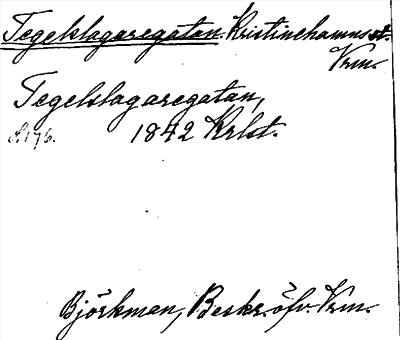 Tegelslagaregatan. Kristinehamns st.
Vrm.
Tegelslagaregatan,
s. 176. 1842 Krlst.
Björkman, Beskr. öfv. Vrm.